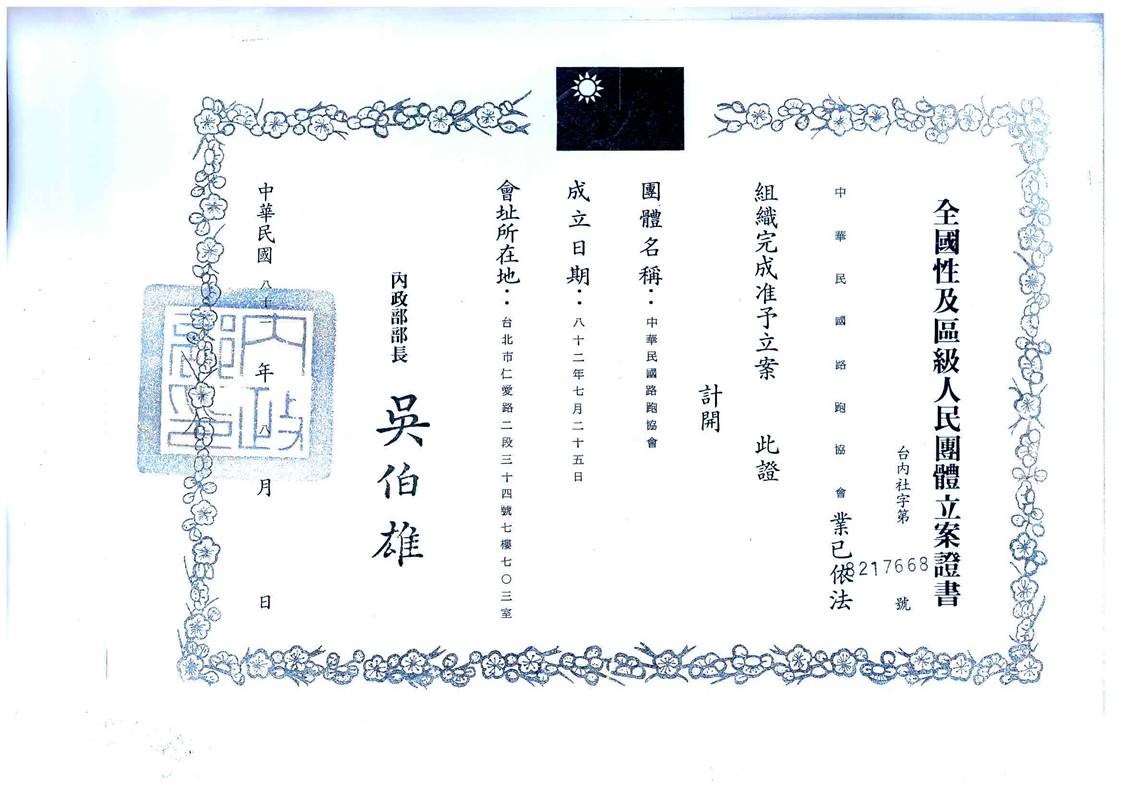 全國性及區級人民團體立案證書
台內社字第8217668號
中華民國路跑協會業已依法
組織完成准予立案　此證
計開
團體名稱：中華民國路跑協會
成立日期：八十二年七月二十五日
會址所在地：台北市仁愛路二段三十四號七樓七〇三室
內政部部長　吳伯雄
中華民國八十二年八月　日
內政部印